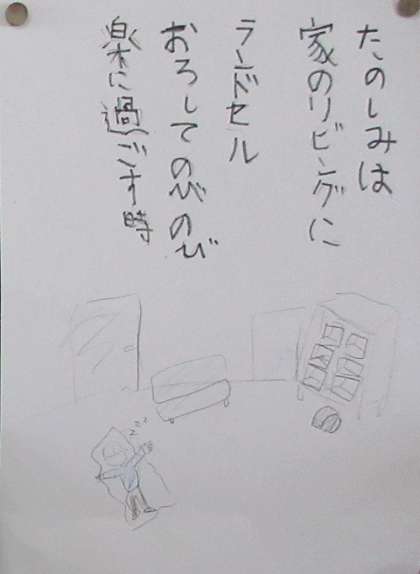 たのしみは
家のリビングに
ランドセル
おろしてのびのび
楽に過ごす時
zzz